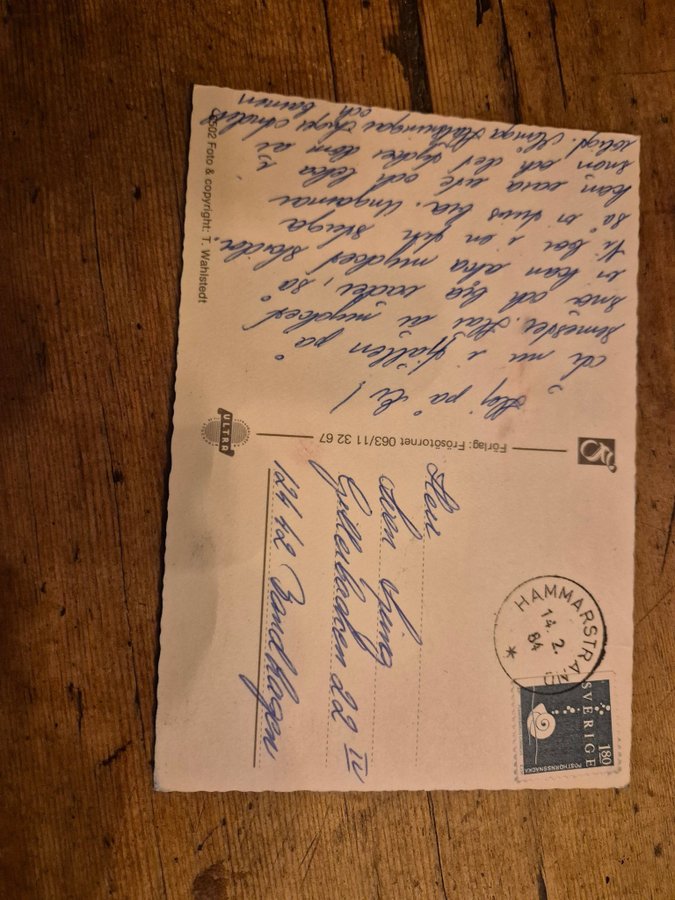 Hej på Er!
Är nu i fjällen på
semester. Här är mycket
snö och bra väder, så
vi kan åka mycket skidor.
Vi bor i en fin stuga
så vi trivs bra. Ungarna
kan vara ute och leka i
snön och det tycker dom är
roligt. Många Hälsningar Inger Anders
och barnen
Foto & copyright: T. Wahlstedt
ULTRA
Förlag: Frösötornet 063/11 32 67
HAMMARSTRAND
14.2.
84
SVERIGE
180
POSTHORNSSNÄCKA
Herr
Ljung
Gillerbacken 22 IV
124 42 Bandhagen